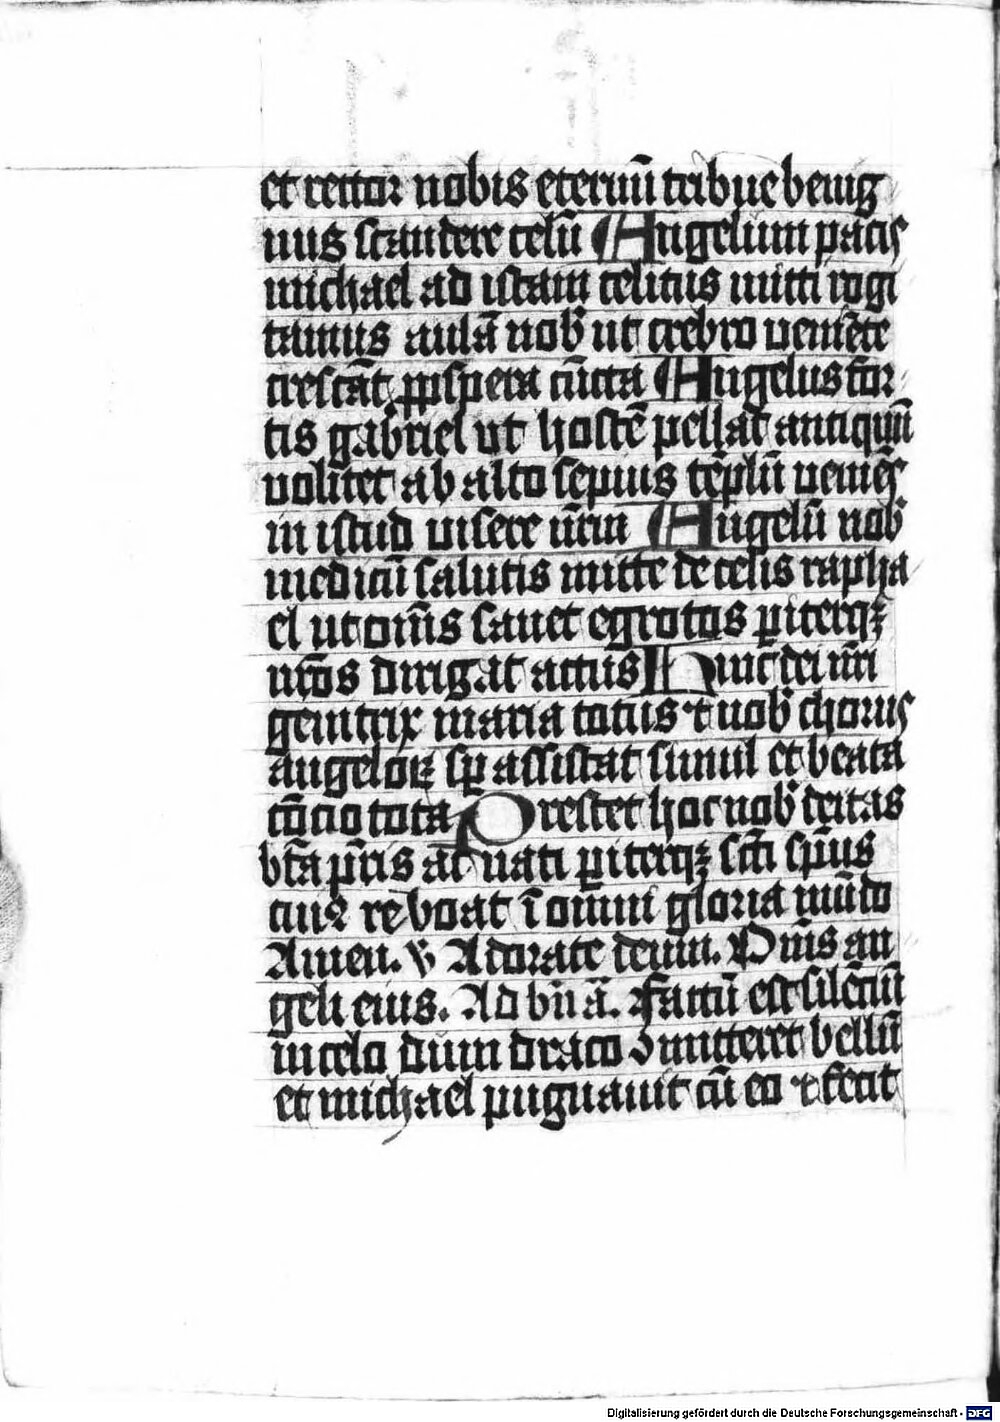 et rector nobis eternū tribue benig
nus scandere celū Angelum pacis
michael ad istam celitus mitti rogi
tamus aulā nob᷒ ut crebro veniēte
crescāt ꝓspera cūcta Angelus for
tis gabriel ut hostē pellat antiquū
volitet ab alto sepius tēplū veniēs
in istud visere nr̄m Angelū nob᷒
medicū salutis mitte de celis rapha
el ut om̄s sanet egrotos ꝑiterqꝫ
nr̄os dirigat actus Hinc dei nr̄i
genitrix maria totus ⁊ nob᷒ chorus
angeloꝝ sꝑ assistat simul et beata
cōcio tota Prestet hoc nob᷒ deitas
bt̄a pr̄is ac nati ꝑiterqꝫ sct̄i sp̄us
cuiꝰ reboat ī omni gloria mūdo
Amen. v Adorate deum. Om̄s an
geli eius. Ad bn̄ ā. Factū est silēciū
in celo dum draco mitteret bellū
et michael pugnavit cū eo ⁊ fecit
Digitalisierung gefördert durch die Deutsche Forschungsgemeinschaft - DFG